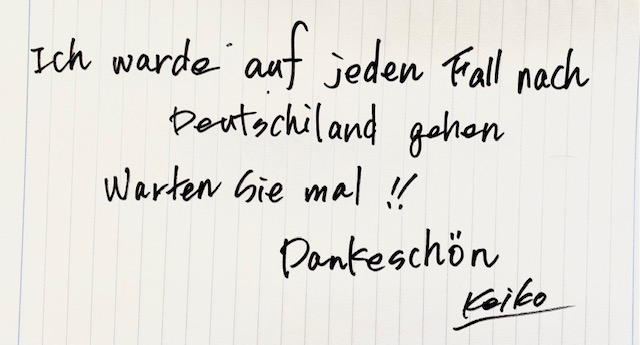 Ich warde auf jeden Fall nach
Deutschiland gehen
Warten Sie mal !!
Dankeschön
Keiko